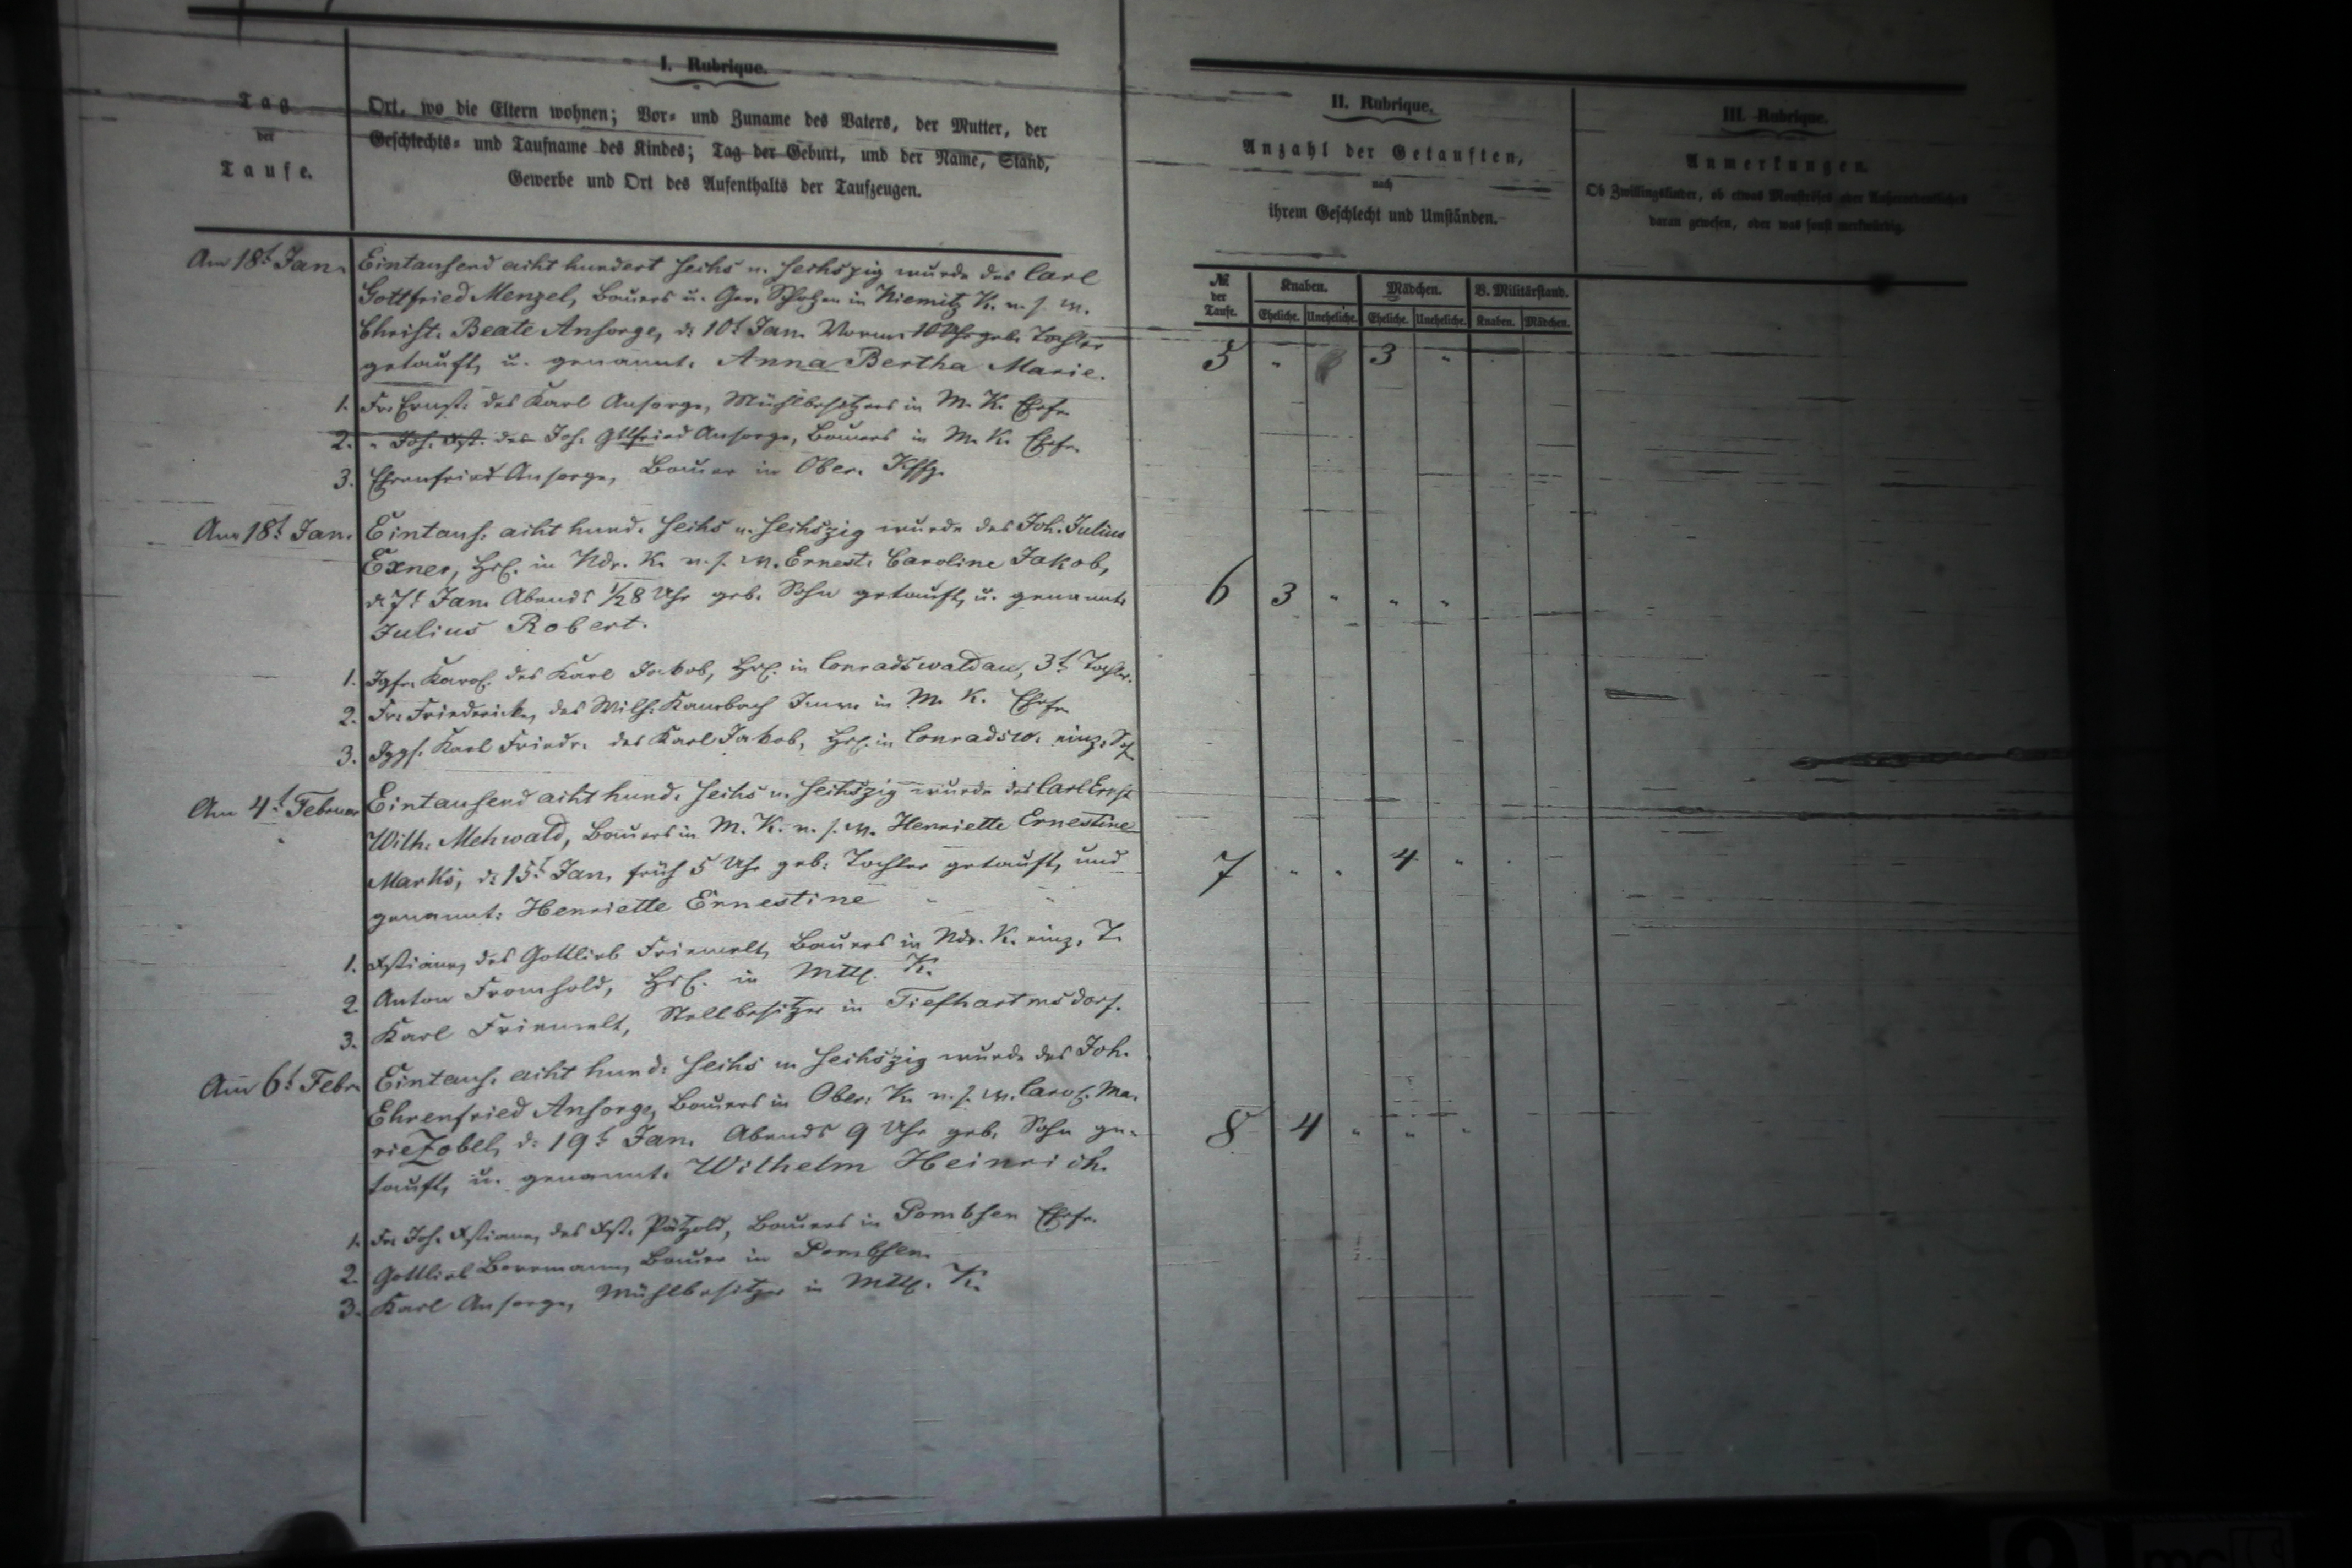 I. Rubrique.
Tag
der
Taufe.
Ort, wo die Eltern wohnen; Vor- und Zuname des Vaters, der Mutter, der
Geschlechts- und Taufname des Kindes; Tag der Geburt, und der Name, Stand,
Gewerbe und Ort des Aufenthalts der Taufzeugen.
Am 18t Jan. Eintausend acht hundert sechs u. sechszig wurde des Carl
Gottfried Menzel, Bauers u. Ger. Scholzen in Niemitz K. u. s. W.
Christ. Beate Ansorge, d. 10t Jan. Vorm. 10 Uhr geb. Tochter
getauft u. genannt. Anna Bertha Marie.
1. Fr. Ernst. des Karl Ansorge, Mühlbesitzers in M. K. Ehefr.
2. " Joh. Xst. des Joh. Gttfried Ansorge, Bauers in M. K. Ehefr.
3. Ehrenfried Ansorge, Bauer in Ober.
Am 18t Jan. Eintaus. acht hund. sechs u. sechszig wurde des Joh. Julius
Exner, Hsl. in Ndr. K. u. s. W. Ernest. Caroline Jakob,
d. 7t Jan. Abends 1/2 8 Uhr geb. Sohn getauft u. genannt.
Julius Robert.
1. Igfr. Karol. des Karl Jakob, Hsl. in Conradswaldau, 3t Tochter.
2. Fr. Friedericke, des Wilh. Inw. in M. K. Ehefr.
3. Jggs. Karl Friedr. des Karl Jakob, Hsl. in Conradsw. einz. S.
Am 4t Februar Eintausend acht hund. sechs u. sechszig wurde des Carl Ernst
Wilh. Mehwald, Bauers in M. K. u. s. W. Henriette Ernestine
Marks, d. 15t Jan. früh 5 Uhr geb. Tochter getauft, und
genannt: Henriette Ernestine
1. Xstiane, des Gottlieb Friemelt, Bauers in Ndr. K. einz. T.
2. Anton Fromhold, Hsl. in Mttl. K.
3. Karl Friemelt, Stellbesitzer in Tiefhartmsdorf.
Am 6t Febr. Eintaus. acht hund. sechs u. sechszig wurde des Joh.
Ehrenfried Ansorge, Bauers in Ober. K. u. s. W. Carol. Ma-
rie Zobel, d. 19t Jan. Abends 9 Uhr geb. Sohn ge-
tauft, u. genannt. Wilhelm Heinrich.
1. Fr. Joh. Xstiane, des Xst. Pätzold, Bauers in Pombsen Ehefr.
2. Gottlieb Beermann, Bauer in Pombsen.
3. Karl Ansorge, Mühlbesitzer in Mttl. K.
II. Rubrique.
Anzahl der Getauften,
nach
ihrem Geschlecht und Umständen.
№ der Taufe. Knaben. Mädchen. B. Militärstand.
Eheliche. Uneheliche. Eheliche. Uneheliche. Knaben. Mädchen.
5 " 3 "
6 3 " " "
7 " " 4 "
8 4 " " "
III. Rubrique.
Anmerkungen.
Ob Zwillingskinder, ob etwas Monströses oder Außerordentliches
daran gewesen, oder was sonst merkwürdig.